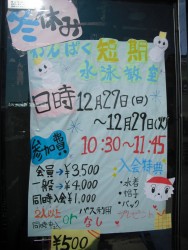 冬休み
わんぱく短期
水泳教室
日時 12月27日(日)
〜12月29日(火)
10:30〜11:45
参加費
会員→¥3,500
一般→¥4,000
同時入会→¥1,000
入会特典
・水着
・帽子
・バック
プレゼント
2人以上
or
バス利用
なし
¥500